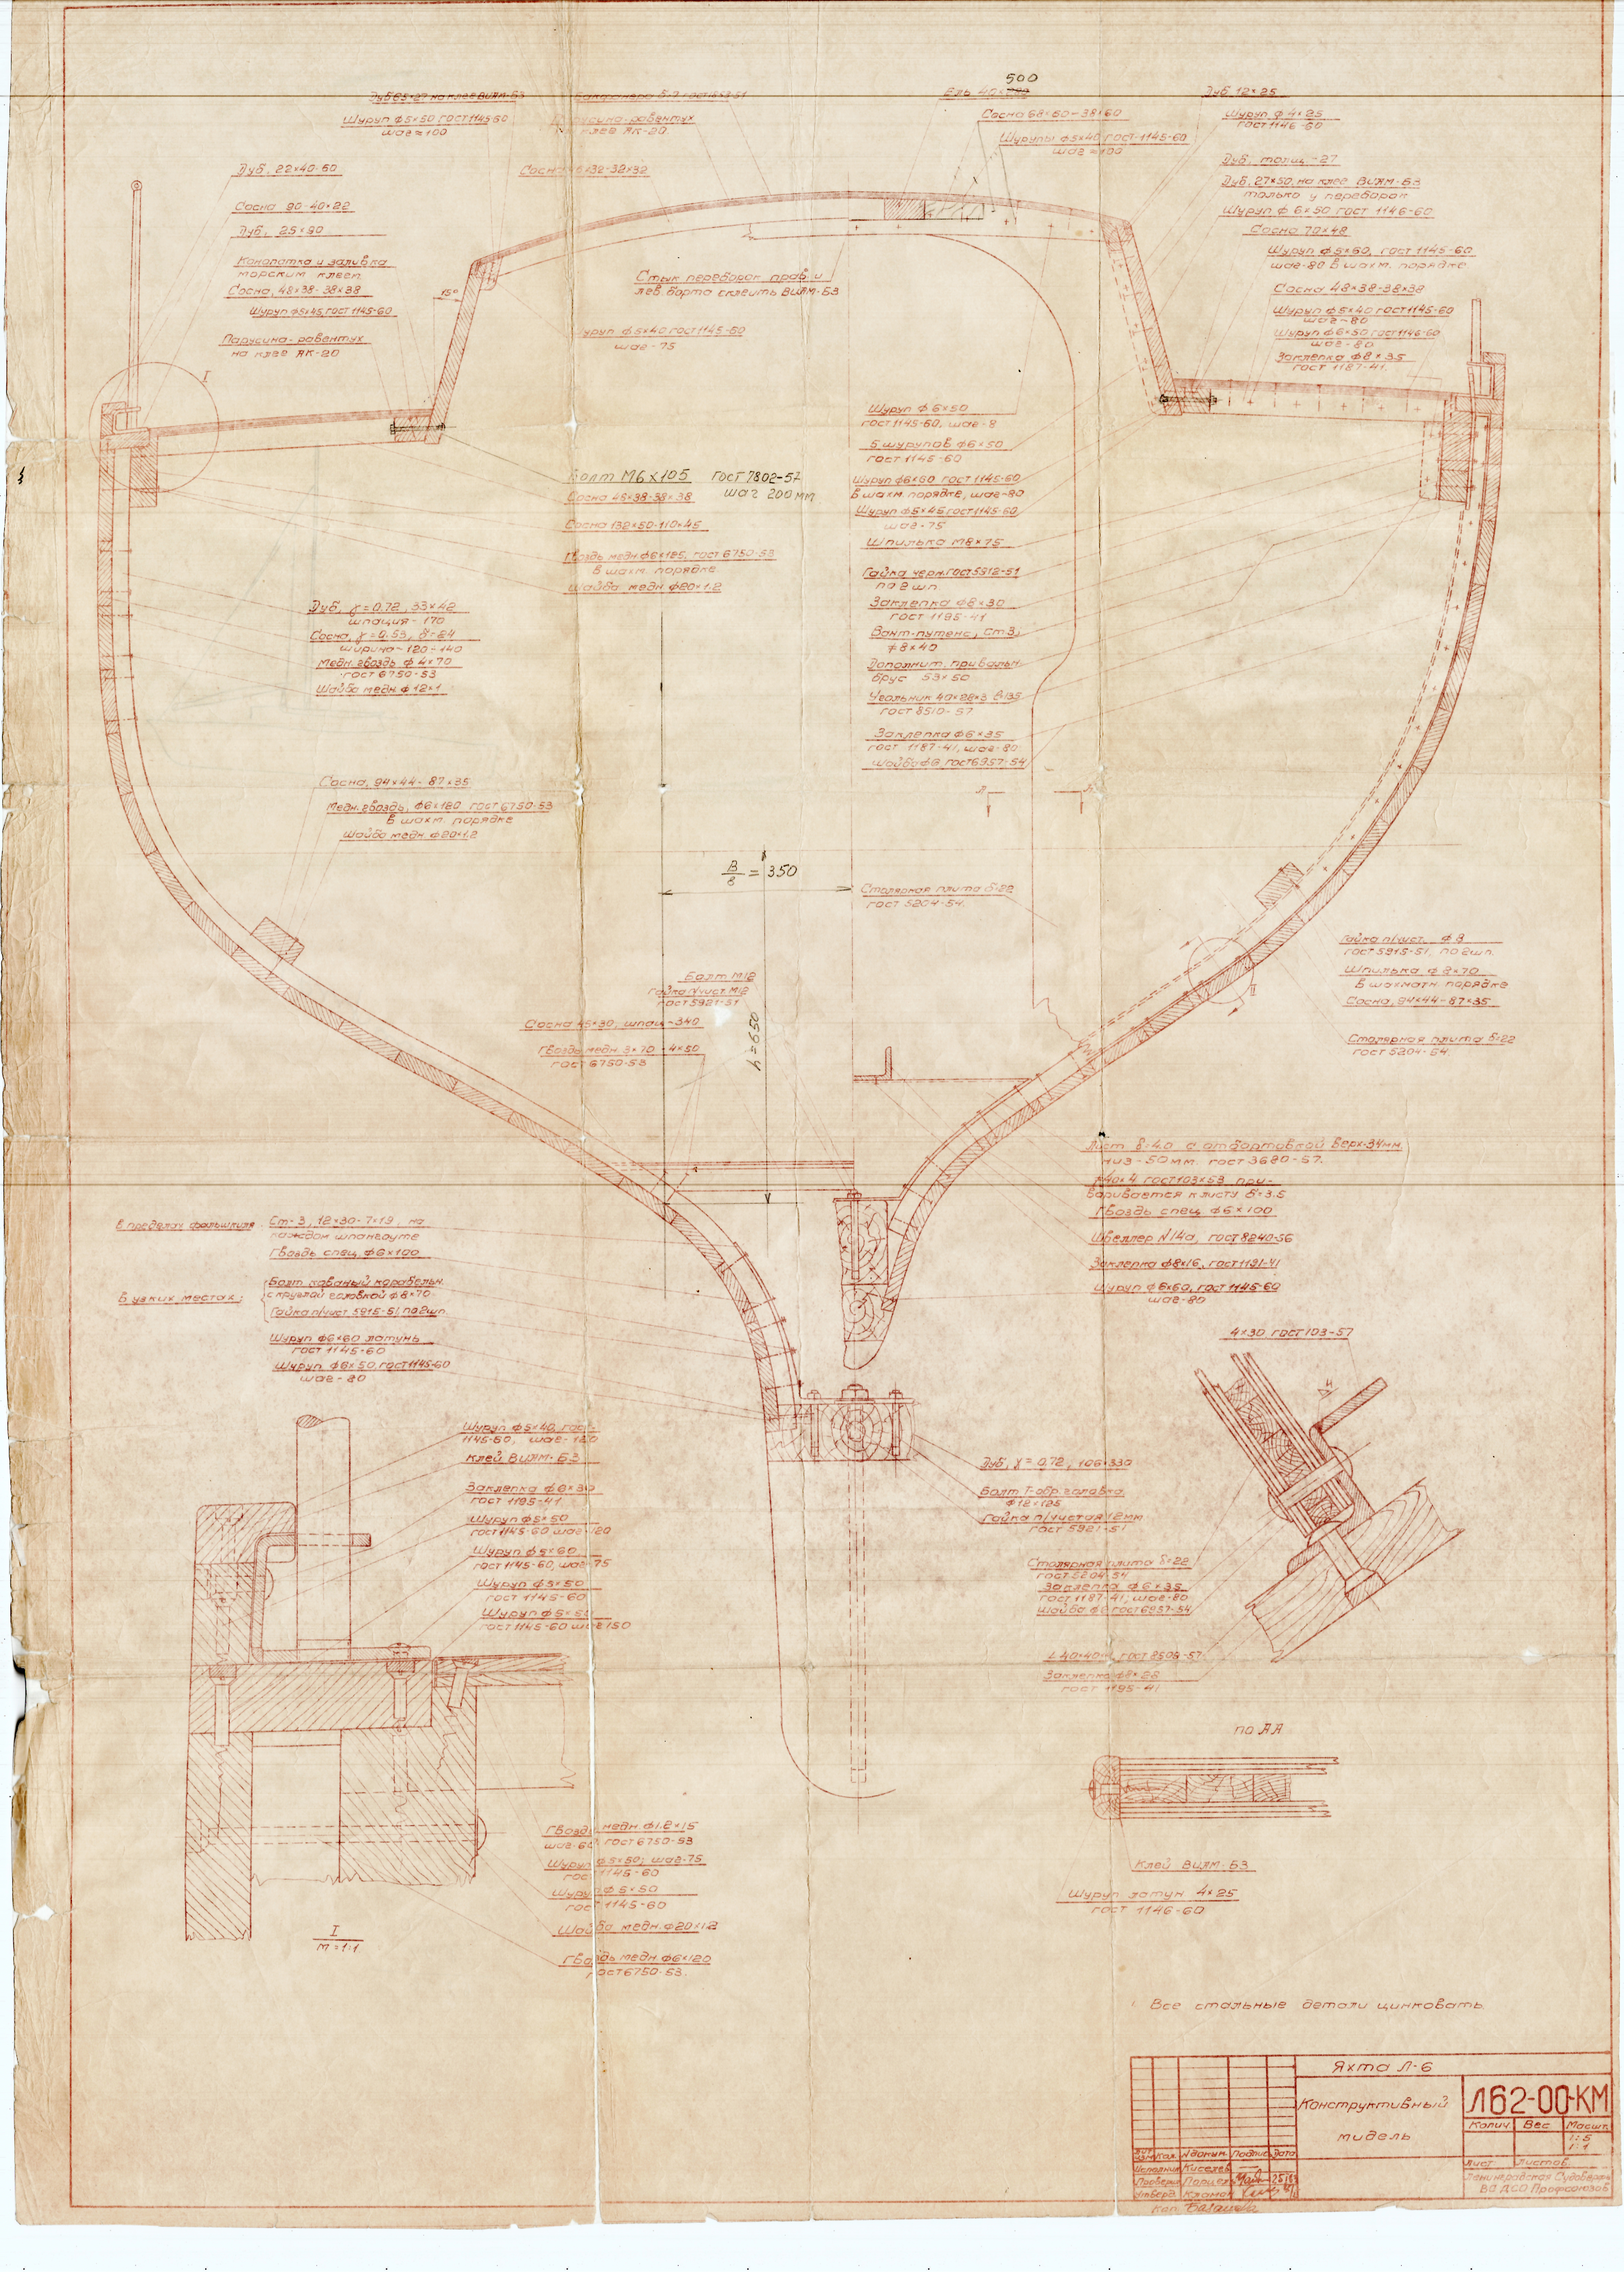 500
Дуб 65×27 на клее ВИАМ-Б3
Шуруп ф5×50 гост 1145-60
шаг ≈ 100
Парусина-равентух
клее ЯК-20
Ель 40×
Сосна 68×60-38×60
Шурупы ф5×40 гост-1145-60
шаг ≈ 100
Дуб 12×25
Шуруп ф 4×25
гост 1146-60
Дуб, толщ-27
Дуб, 27×50, на клее ВИАМ-Б3
только у переборок
Шуруп ф 6×50 гост 1146-60
Сосна 70×48
Шуруп ф5×60, гост 1145-60
шаг-80 в шахм. порядке
Сосна 48×38-38×38
Шуруп ф5×40 гост 1145-60
шаг-80
Шуруп ф6×50 гост 1146-60
шаг-80
Заклепка ф8×35
гост 1187-41
Дуб, 22×40-60
Сосна 90-40×22
Дуб, 25×90
Конопатка и заливка
морским клеем
Сосна, 48×38-38×38
Шуруп ф5×45 гост 1145-60
Парусина-равентух
на клее ЯК-20
15°
I
Стык переборок прав. и
лев. борта склеить ВИАМ-Б3
Шуруп ф5×40 гост 1145-60
шаг-75
Болт М6×105 ГОСТ 7802-57
шаг 200мм
Сосна 48×38-38×38
Сосна 132×50-110×45
Гвоздь медн. ф6×125, гост 6750-53
в шахм. порядке
Шайба медн. ф20×1.2
Шуруп ф 6×50
гост 1145-60, шаг-8
5 шурупов ф6×50
гост 1145-60
Шуруп ф6×60 гост 1145-60
в шахм. порядке, шаг-80
Шуруп ф5×45 гост 1145-60
шаг-75
Шпилька М8×75
Гайка черн. гост 5912-51
по 2 шт.
Заклепка ф8×30
гост 1195-41
Вант-путенс, Ст3,
ф8×40
Дополнит. привальн.
брус 53×50
Угольник 40×28×3
гост 8510-57
Заклепка ф6×35
гост 1187-41, шаг-80
шайба ф6 гост 6957-54
Дуб, γ=0.72, 33×42
шпация-170
Сосна, γ=0.53, δ=24
ширина-120-140
Медн. гвоздь ф 4×70
гост 6750-53
Шайба медн. ф 12×1
Сосна, 94×44-87×35
Медн. гвоздь, ф6×120 гост 6750-53
в шахм. порядке
Шайба медн. ф20×1.2
B/8 = 350
h=650
Столярная плита δ=22
гост 5204-54.
Болт М12
Гайка п/чист. М12
гост 5921-51
Сосна 45×30, шпац-340
Гвоздь медн. 3×70-4×50
гост 6750-53
Гайка п/чист. ф 8
гост 5915-51, по 2шт.
Шпилька ф 8×70
в шахматн. порядке
Сосна, 94×44-87×35
Столярная плита δ=22
гост 5204-54.
Лист δ=4.0 с отбортовкой верх-34мм
низ-50мм. гост 3680-57.
40×4 гост 103×53 при-
варивается к листу δ=3.5
Гвоздь спец ф6×100
Швеллер N14а, гост 8240-56
Заклепка ф8×16, гост 1191-41
Шуруп ф6×60, гост 1145-60
шаг-80
В пределах фальшкиля
Ст-3, 12×30-7×19 на
каждом шпангоуте
Гвоздь спец, ф6×100
В узких местах:
Болт кованый корабельн.
с круглой головкой ф 8×70
Гайка п/чист 5915-51, по 2шт.
Шуруп ф6×60 латунь
гост 1145-60
Шуруп ф6×50 гост 1145-60
шаг-80
4×30 гост 103-57
Шуруп ф5×40, гост-
1145-60, шаг-120
клей ВИАМ-Б3
Заклепка ф6×30
гост 1195-41
Шуруп ф5×50
гост 1145-60 шаг-120
Шуруп ф5×60
гост 1145-60, шаг-75
Шуруп ф5×50
гост 1145-60
Шуруп ф5×50
гост 1145-60 шаг 150
Дуб, γ=0.72, 106×330
Болт Т-обр. головка
ф12×125
Гайка п/чистая 12мм
гост 5921-51
Столярная плита δ=22
гост 5204-54
Заклепка ф 6×35
гост 1187-41, шаг-80
шайба ф6 гост 6957-54
Заклепка ф8×26
гост 1195-41
по АА
Клей ВИАМ-Б3
Шуруп латун 4×25
гост 1146-60
Гвоздь медн. ф1.2×15
шаг-60 гост 6750-53
Шуруп ф5×50; шаг-75
гост 1145-60
Шуруп ф5×50
гост 1145-60
Шайба медн. ф20×1.2
Гвоздь медн. ф6×120
гост 6750-53.
I
М=1:1
Все стальные детали цинковать.
Яхта Л-6
Конструктивный
мидель
Л62-00-КМ
Колич. Вес Масшт.
1:5
1:1
Лист Листов
Ленинградская Судоверфь
ВЦ ДСО Профсоюзов
N докум. Подпис Дата
Исполнил Киселев
Провер.
Утверд.
Коп.